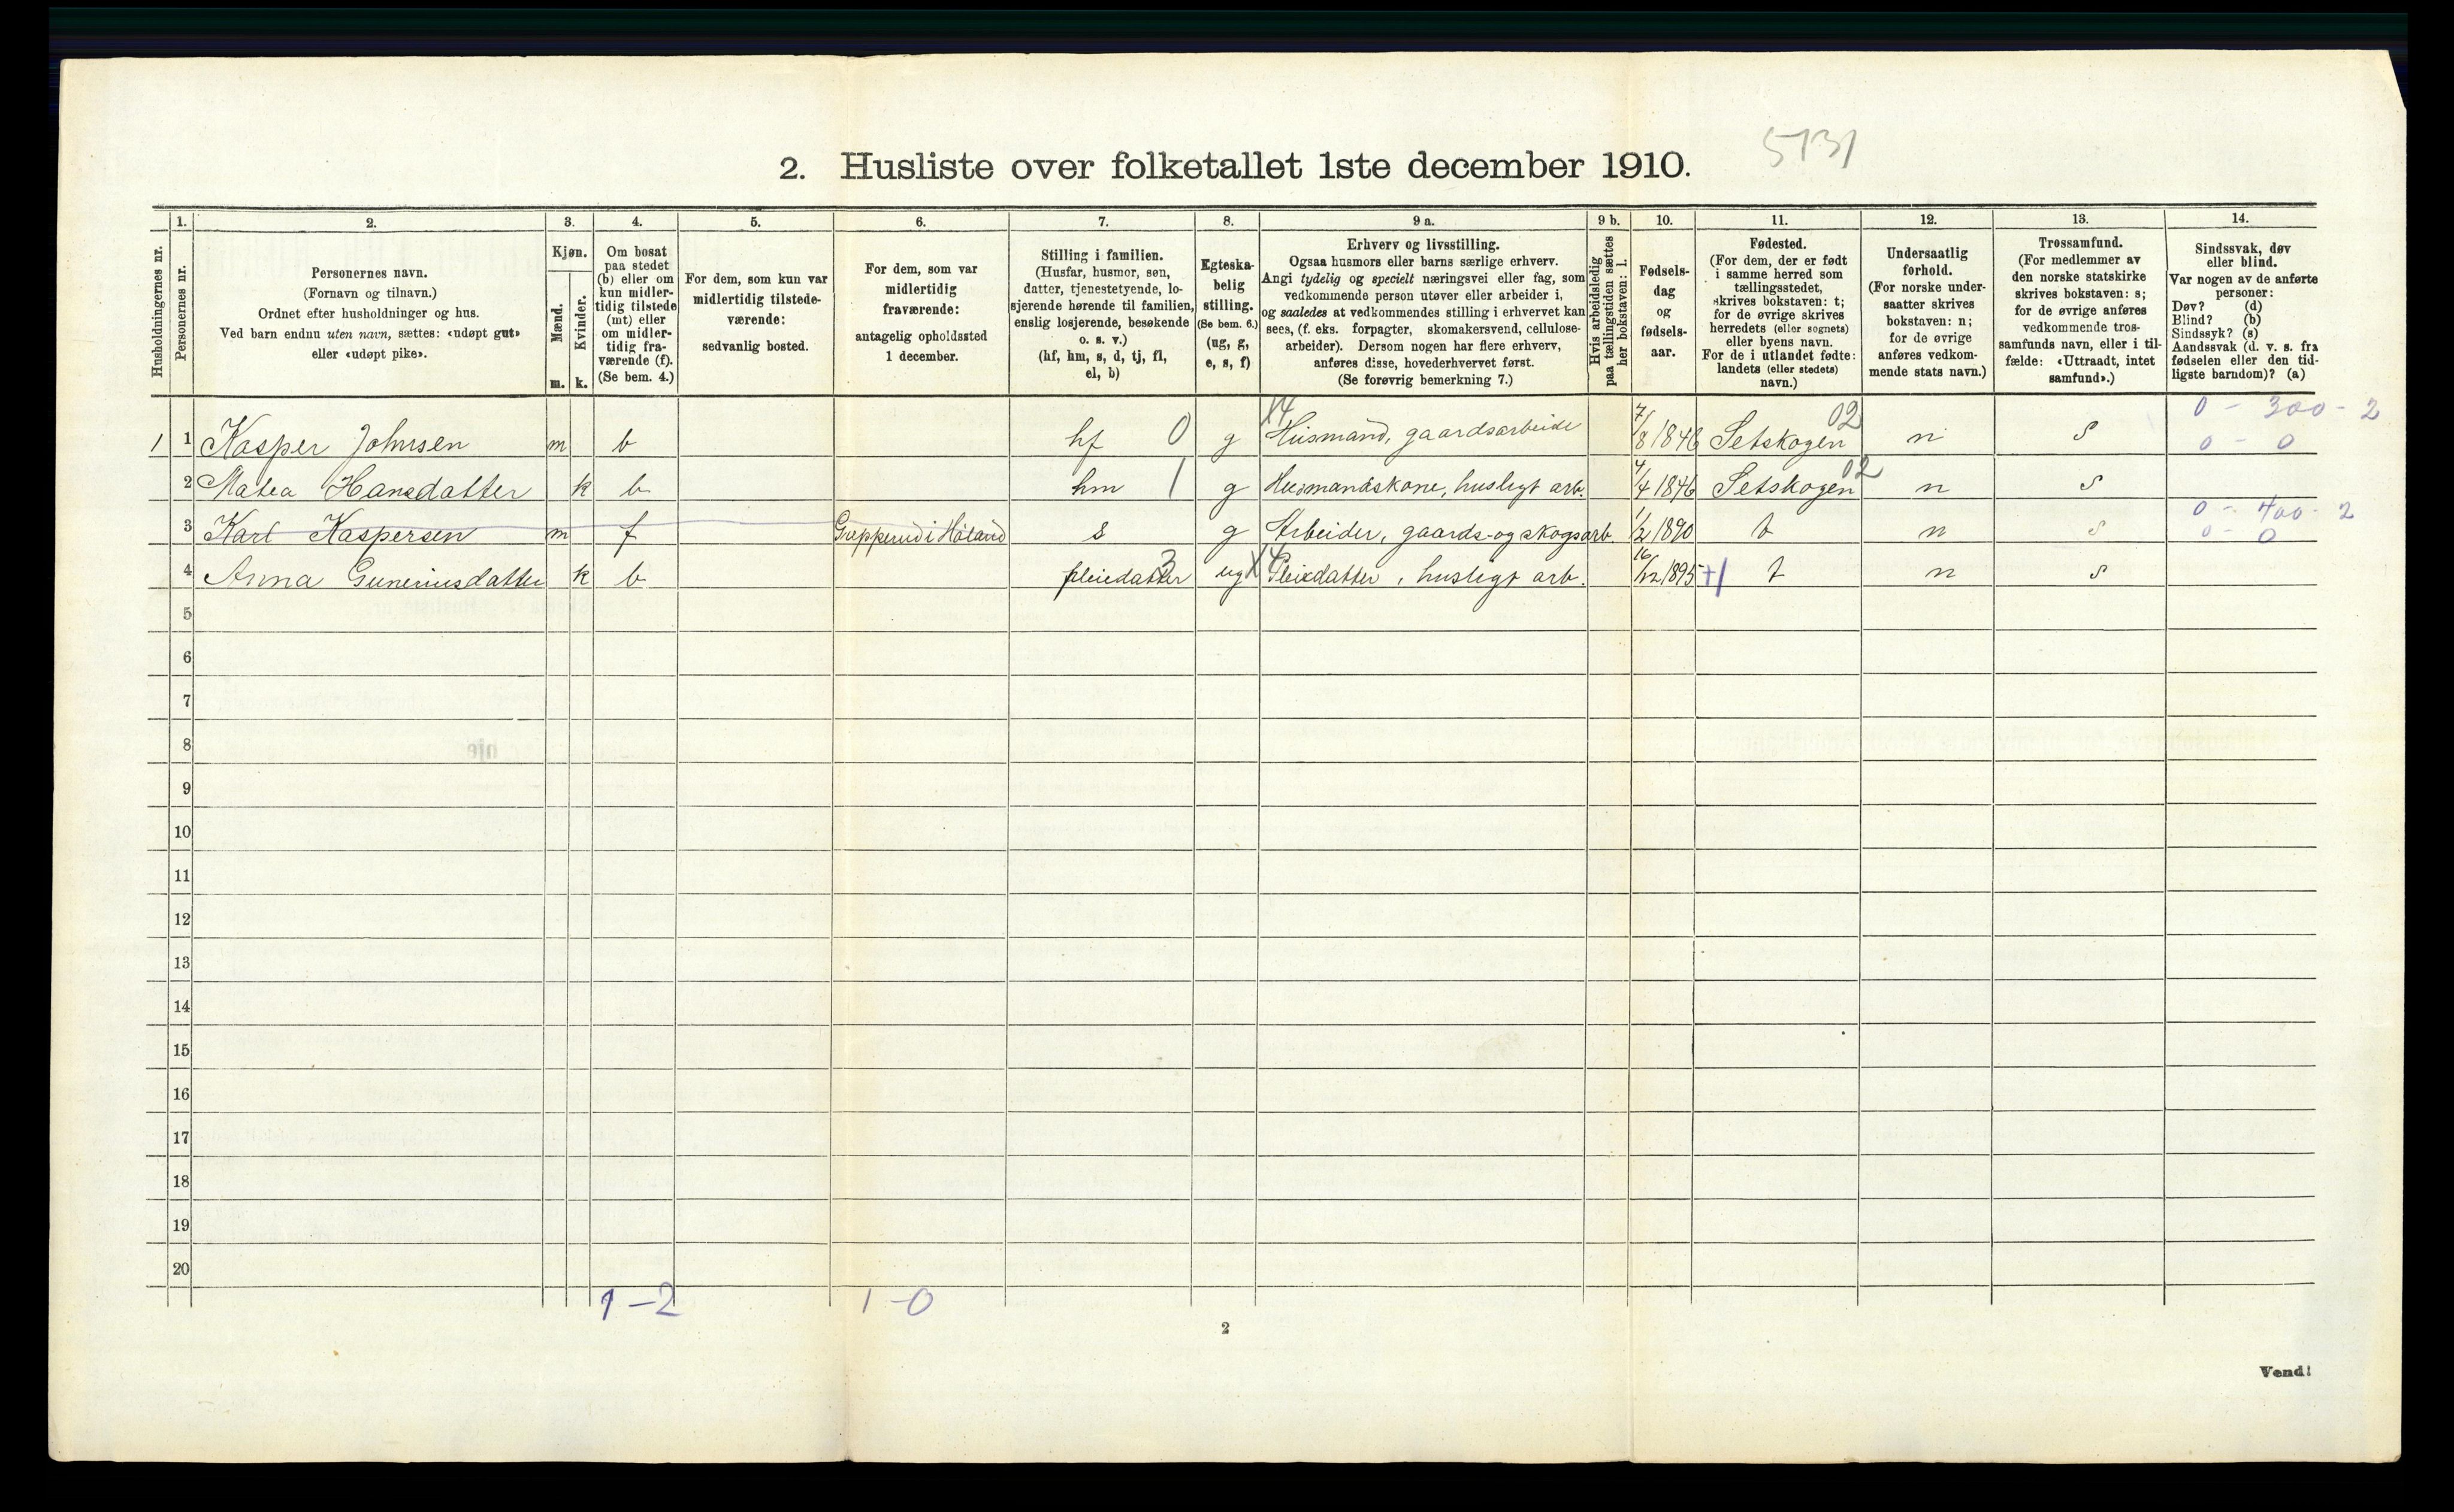 5131
2. Husliste over folketallet 1ste december 1910.
Husholdningernes nr.
1.
Personernes nr.
2.
Personernes navn.
(Fornavn og tilnavn.)
Ordnet efter husholdninger og hus.
Ved barn endnu uten navn, sættes: «udøpt gut»
eller «udøpt pike».
3.
Kjøn.
Mænd.
Kvinder.
m. k.
4.
Om bosat
paa stedet
(b) eller om
kun midler-
tidig tilstede
(mt) eller
om midler-
tidig fra-
værende (f).
(Se bem. 4.)
5.
For dem, som kun var
midlertidig tilstede-
værende:
sedvanlig bosted.
6.
For dem, som var
midlertidig
fraværende:
antagelig opholdssted
1 december.
7.
Stilling i familien.
(Husfar, husmor, søn,
datter, tjenestetyende, lo-
sjerende hørende til familien,
enslig losjerende, besøkende
o. s. v.)
(hf, hm, s, d, tj, fl,
el, b)
8.
Egteska-
belig
stilling.
(Se bem. 6.)
(ug, g,
e, s, f)
9 a.
Erhverv og livsstilling.
Ogsaa husmors eller barns særlige erhverv.
Angi tydelig og specielt næringsvei eller fag, som
vedkommende person utøver eller arbeider i,
og saaledes at vedkommendes stilling i erhvervet kan
sees, (f. eks. forpagter, skomakersvend, cellulose-
arbeider). Dersom nogen har flere erhverv,
anføres disse, hovederhvervet først.
(Se forøvrig bemerkning 7.)
9 b.
Hvis arbeidsledig
paa tællingstiden sættes
her bokstaven: l.
10.
Fødsels-
dag
og
fødsels-
aar.
11.
Fødested.
(For dem, der er født
i samme herred som
tællingsstedet,
skrives bokstaven: t;
for de øvrige skrives
herredets (eller sognets)
eller byens navn.
For de i utlandet fødte:
landets (eller stedets)
navn.)
12.
Undersaatlig
forhold.
(For norske under-
saatter skrives
bokstaven: n;
for de øvrige
anføres vedkom-
mende stats navn.)
13.
Trossamfund.
(For medlemmer av
den norske statskirke
skrives bokstaven: s;
for de øvrige anføres
vedkommende tros-
samfunds navn, eller i til-
fælde: «Uttraadt, intet
samfund».)
14.
Sindssvak, døv
eller blind.
Var nogen av de anførte
personer:
Døv? (d)
Blind? (b)
Sindssyk? (s)
Aandssvak (d. v. s. fra
fødselen eller den tid-
ligste barndom)? (a)
1 1 Kasper Johnsen m b hf 0 g X4 Husmand, gaardsarbeide 7/8 1846 Setskogen 02 n s 0 - 300 - 2
0 - 0
2 Matea Hansdatter k b hm 1 g Husmandskone, husligt arb. 4/4 1846 Setskogen 02 n s
3 Karl Kaspersen m f Grepperud i Høland s g Arbeider, gaards- og skogsarb. 1/2 1890 t n s 0 - 400 - 2
0 - 0
4 Anna Guneriusdatter k b pleiedatter 3 ug X4 Pleiedatter, husligt arb. 16/12 1895 +1 t n s
5
6
7
8
9
10
11
12
13
14
15
16
17
18
19
20
1 - 2 1 - 0
2
Vend!